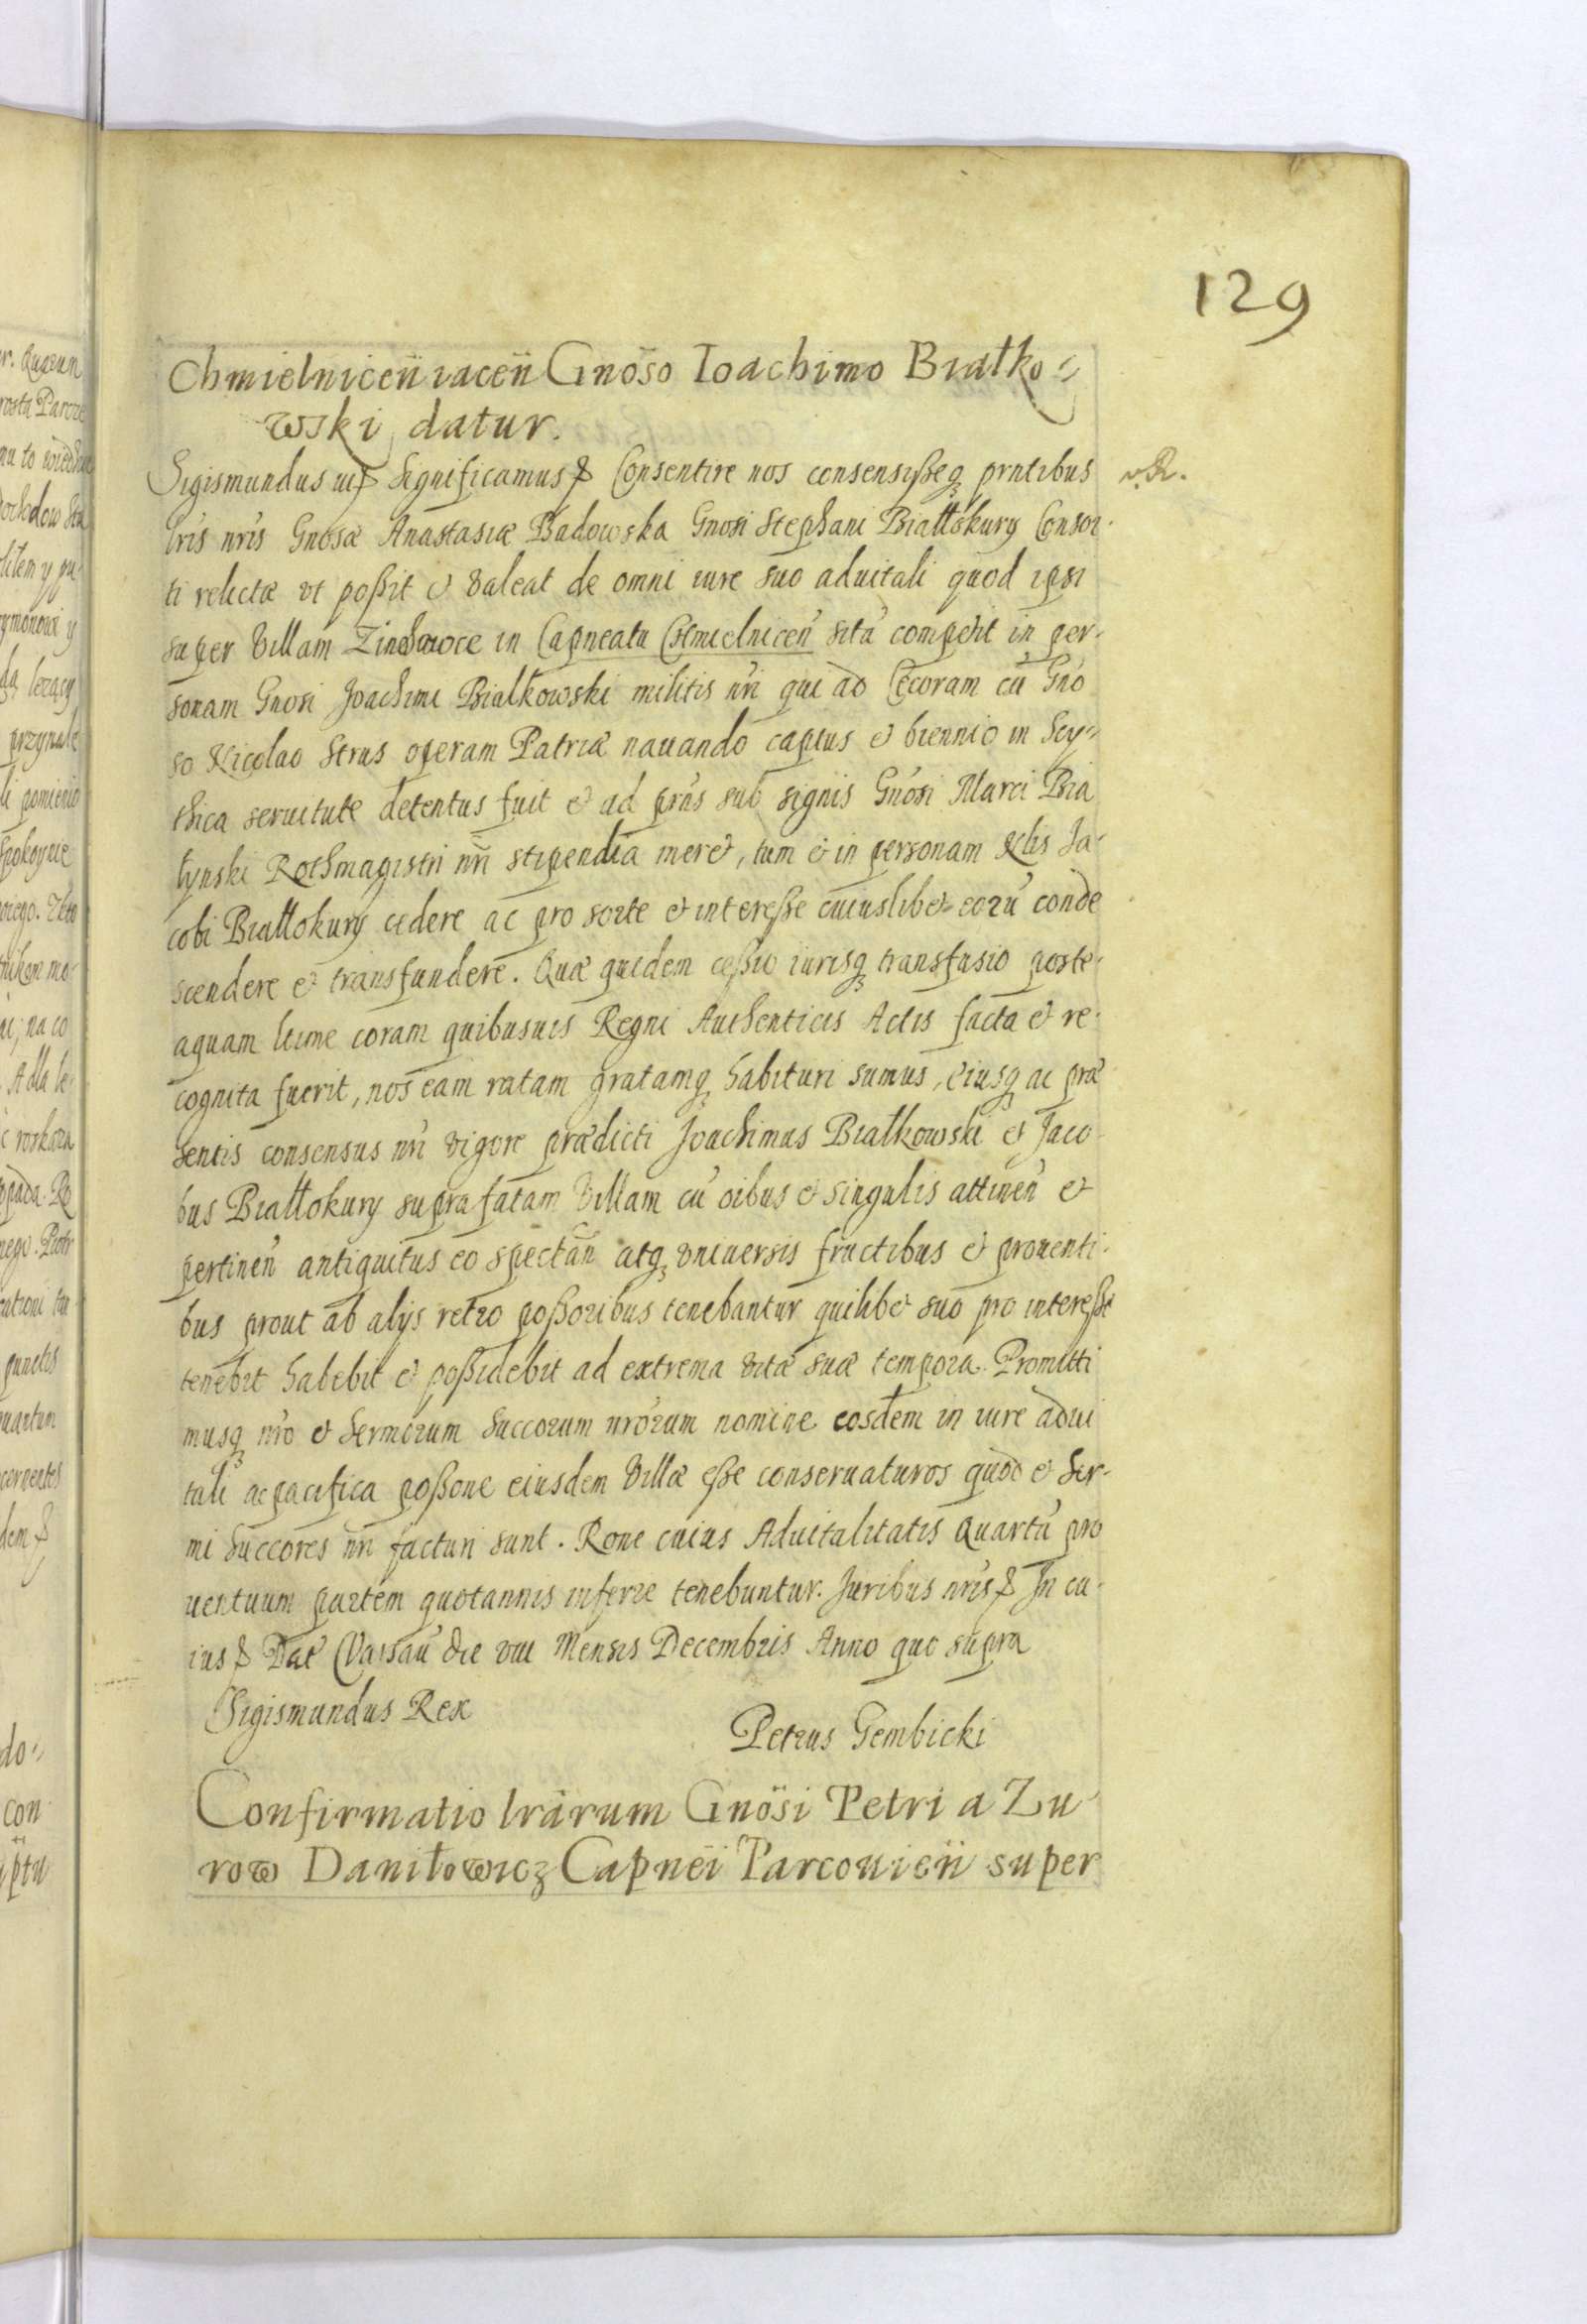 129
Chmielniceñ iaceñ Gnoso Ioachimo Białko=
wski datur.
Sigismundus iii & Significamus & Consentire nos consensisseq prntibus
lris nris Gnosæ Anastasiæ Badowska Gnosi Stephani Białłokury Consor-
ti relictæ vt possit et valeat de omni iure suo aduitali quod ipsi
super villam in Capneatu Chmielnicen sitã competit in per-
sonam Gnosi Joachimi Białkowski militis nri qui ad Cecoram cũ Gno
so Nicolao Strus operam Patriæ nauando captus et biennio in Scy=
thica seruitute detentus fuit et ad prns sub signis Gnosi Marci Bia
łynski Rothmagistri nri stipendia meret, tum et in personam Nlis Ja-
cobi Białłokury cedere ac pro sorte et interesse cuiuslibet eorũ conde
scendere et transfundere. Quæ quidem cessio iurisq transfusio poste-
aquam ltime coram quibusuis Regni Authenticis Actis facta et re-
cognita fuerit, nos eam ratam gratamq habituri sumus, eiusq ac præ
sentis consensus nri vigore prædicti Joachimus Białkowski et Jaco-
bus Białłokury suprafatam villam cũ oibus et singulis attinen et
pertinen antiquitus eo spectañ atq vniuersis fructibus et prouenti-
bus prout ab alijs retro possoribus tenebantur quilibet suo pro interesse
tenebit habebit et possidebit ad extrema vitæ suæ tempora. Promitti
musq nro et Sermorum Succorum nrorum nomine eosdem in iure adui
tali ac pacifica possone eiusdem villæ esse conseruaturos quod et Ser-
mi Succores nri facturi sunt. Rone cuius Aduitalitatis Quartã pro
uentuum partem quotannis inferre tenebuntur. Juribus nris & In cu-
ius & Dat Varsau die viii Mensis Decembris Anno quo supra
Sigismundus Rex
Petrus Gembicki
Confirmatio lrarum Gnosi Petri a Zu-
row Daniłowicz Capnei Parcouieñ super